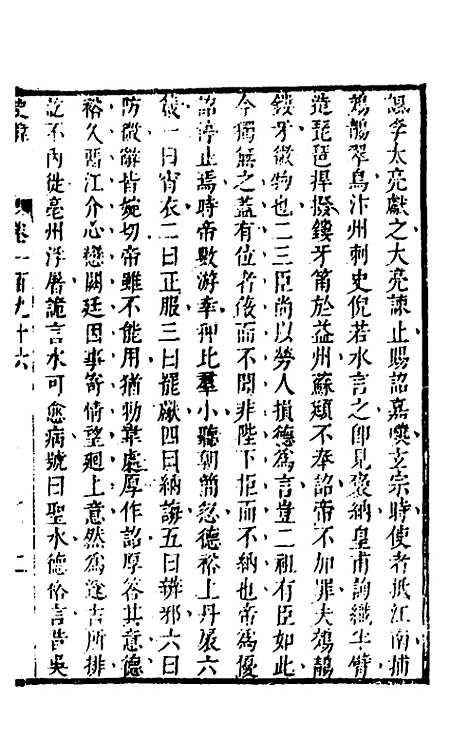 諷李太亮獻之大亮諫止賜詔嘉嘆玄宗時使者抵江南捕
鵁鶄翠鳥汴州刺史倪若水言之卽見褒納皇甫詢織半臂
造琵琶捍撥鏤牙筩於益州蘇頲不奉詔帝不加罪夫鵁鶄
鏤牙微物也二三臣尚以勞人損德爲言豈二祖有臣如此
今獨無之蓋有位者蔽而不聞非陛下拒而不納也帝爲優
詔停止焉時帝數游幸狎比羣小聽朝簡忽德裕上丹扆六
箴一曰宵衣二曰正服三曰罷獻四曰納誨五曰辨邪六曰
防微辭皆婉切帝雖不能用猶勅韋處厚作詔厚答其意德
裕久留江介心戀闕廷因事寄情望廻上意然爲逢吉所排
訖不內徙亳州浮屠詭言水可愈病號曰聖水德裕言昔吳
卷一百九十六
二